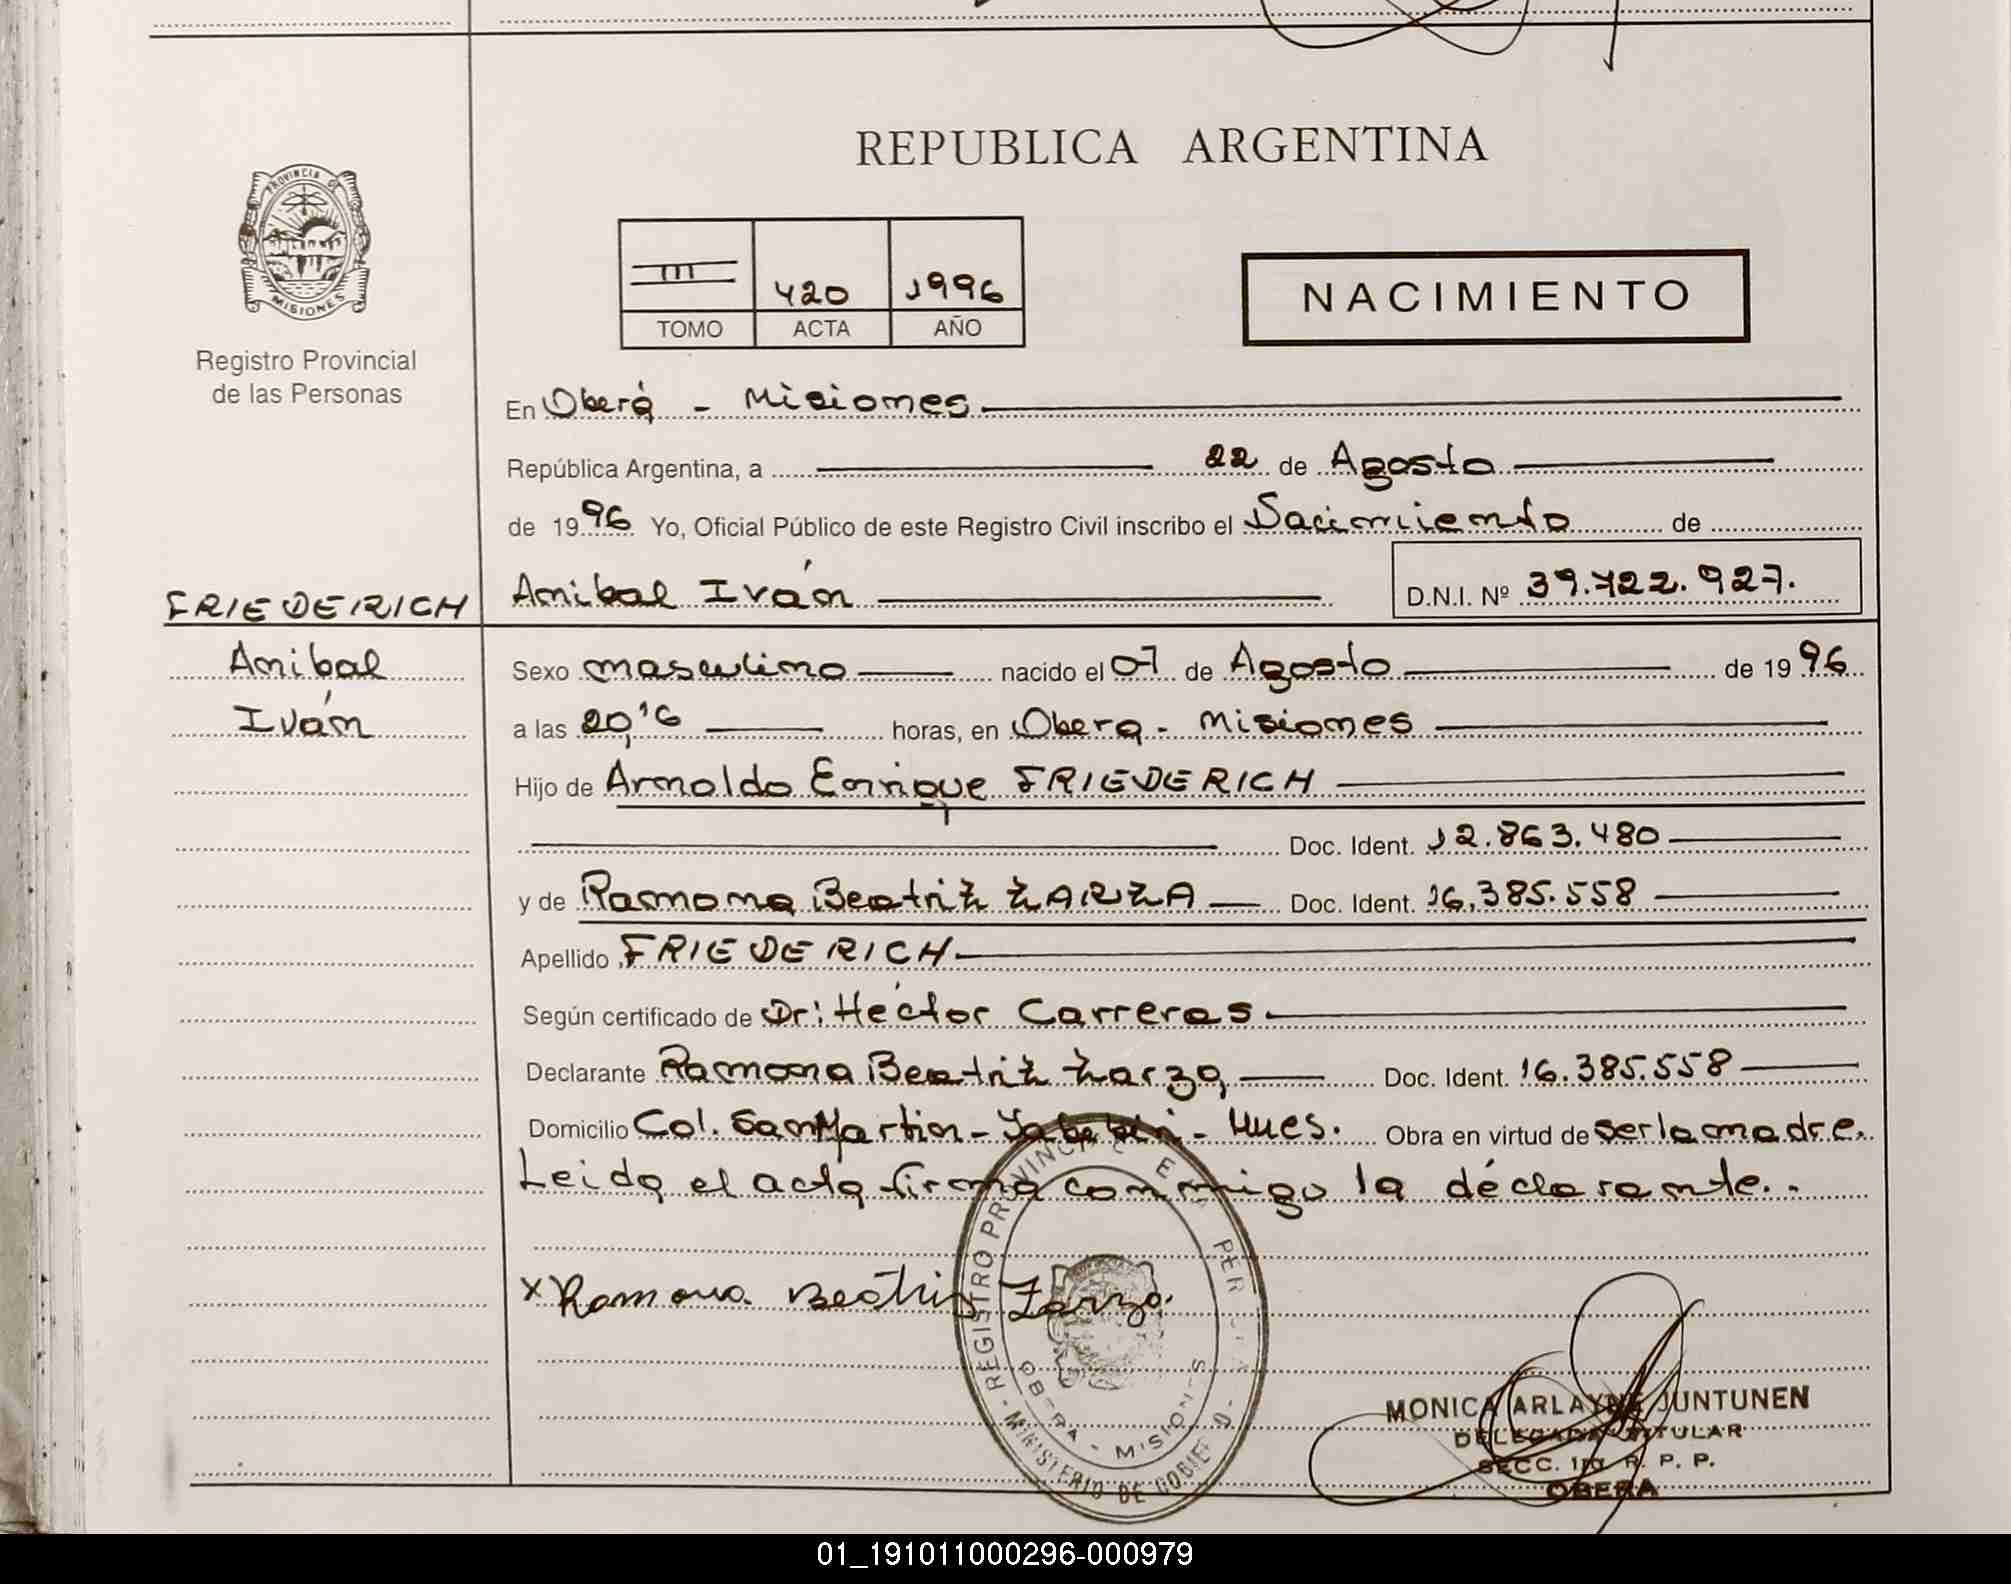 REPUBLICA ARGENTINA
PROVINCIA DE
MISIONES
Registro Provincial
de las Personas
III 420 1996
TOMO ACTA AÑO
NACIMIENTO
En Oberá - Misiones
República Argentina, a 22 de Agosto
de 1996 Yo, Oficial Público de este Registro Civil inscribo el Nacimiento de
FRIEDERICH Anibal Iván D.N.I. Nº 39.722.927.
Anibal Sexo masculino nacido el 07 de Agosto de 1996
Iván a las 20,16 horas, en Obera - Misiones
Hijo de Arnoldo Enrique FRIEDERICH
Doc. Ident. 12.863.480
y de Ramona Beatriz ZARZA Doc. Ident. 16.385.558
Apellido FRIEDERICH
Según certificado de Dr: Héctor Carreras
Declarante Ramona Beatriz Zarza Doc. Ident. 16.385.558
Domicilio Col. San Martin - Yabebiri - Mnes. Obra en virtud de ser la madre.
Leida el acta firma conmigo la declarante..
x Ramona Beatriz Zarza.
REGISTRO PROVINCIAL DE LAS PERSONAS - MINISTERIO DE GOBIERNO -
OBERA - MISIONES
MONICA ARLAYNE JUNTUNEN
DELEGADA TITULAR
SECC. 1ra R. P. P.
OBERA
01_191011000296-000979